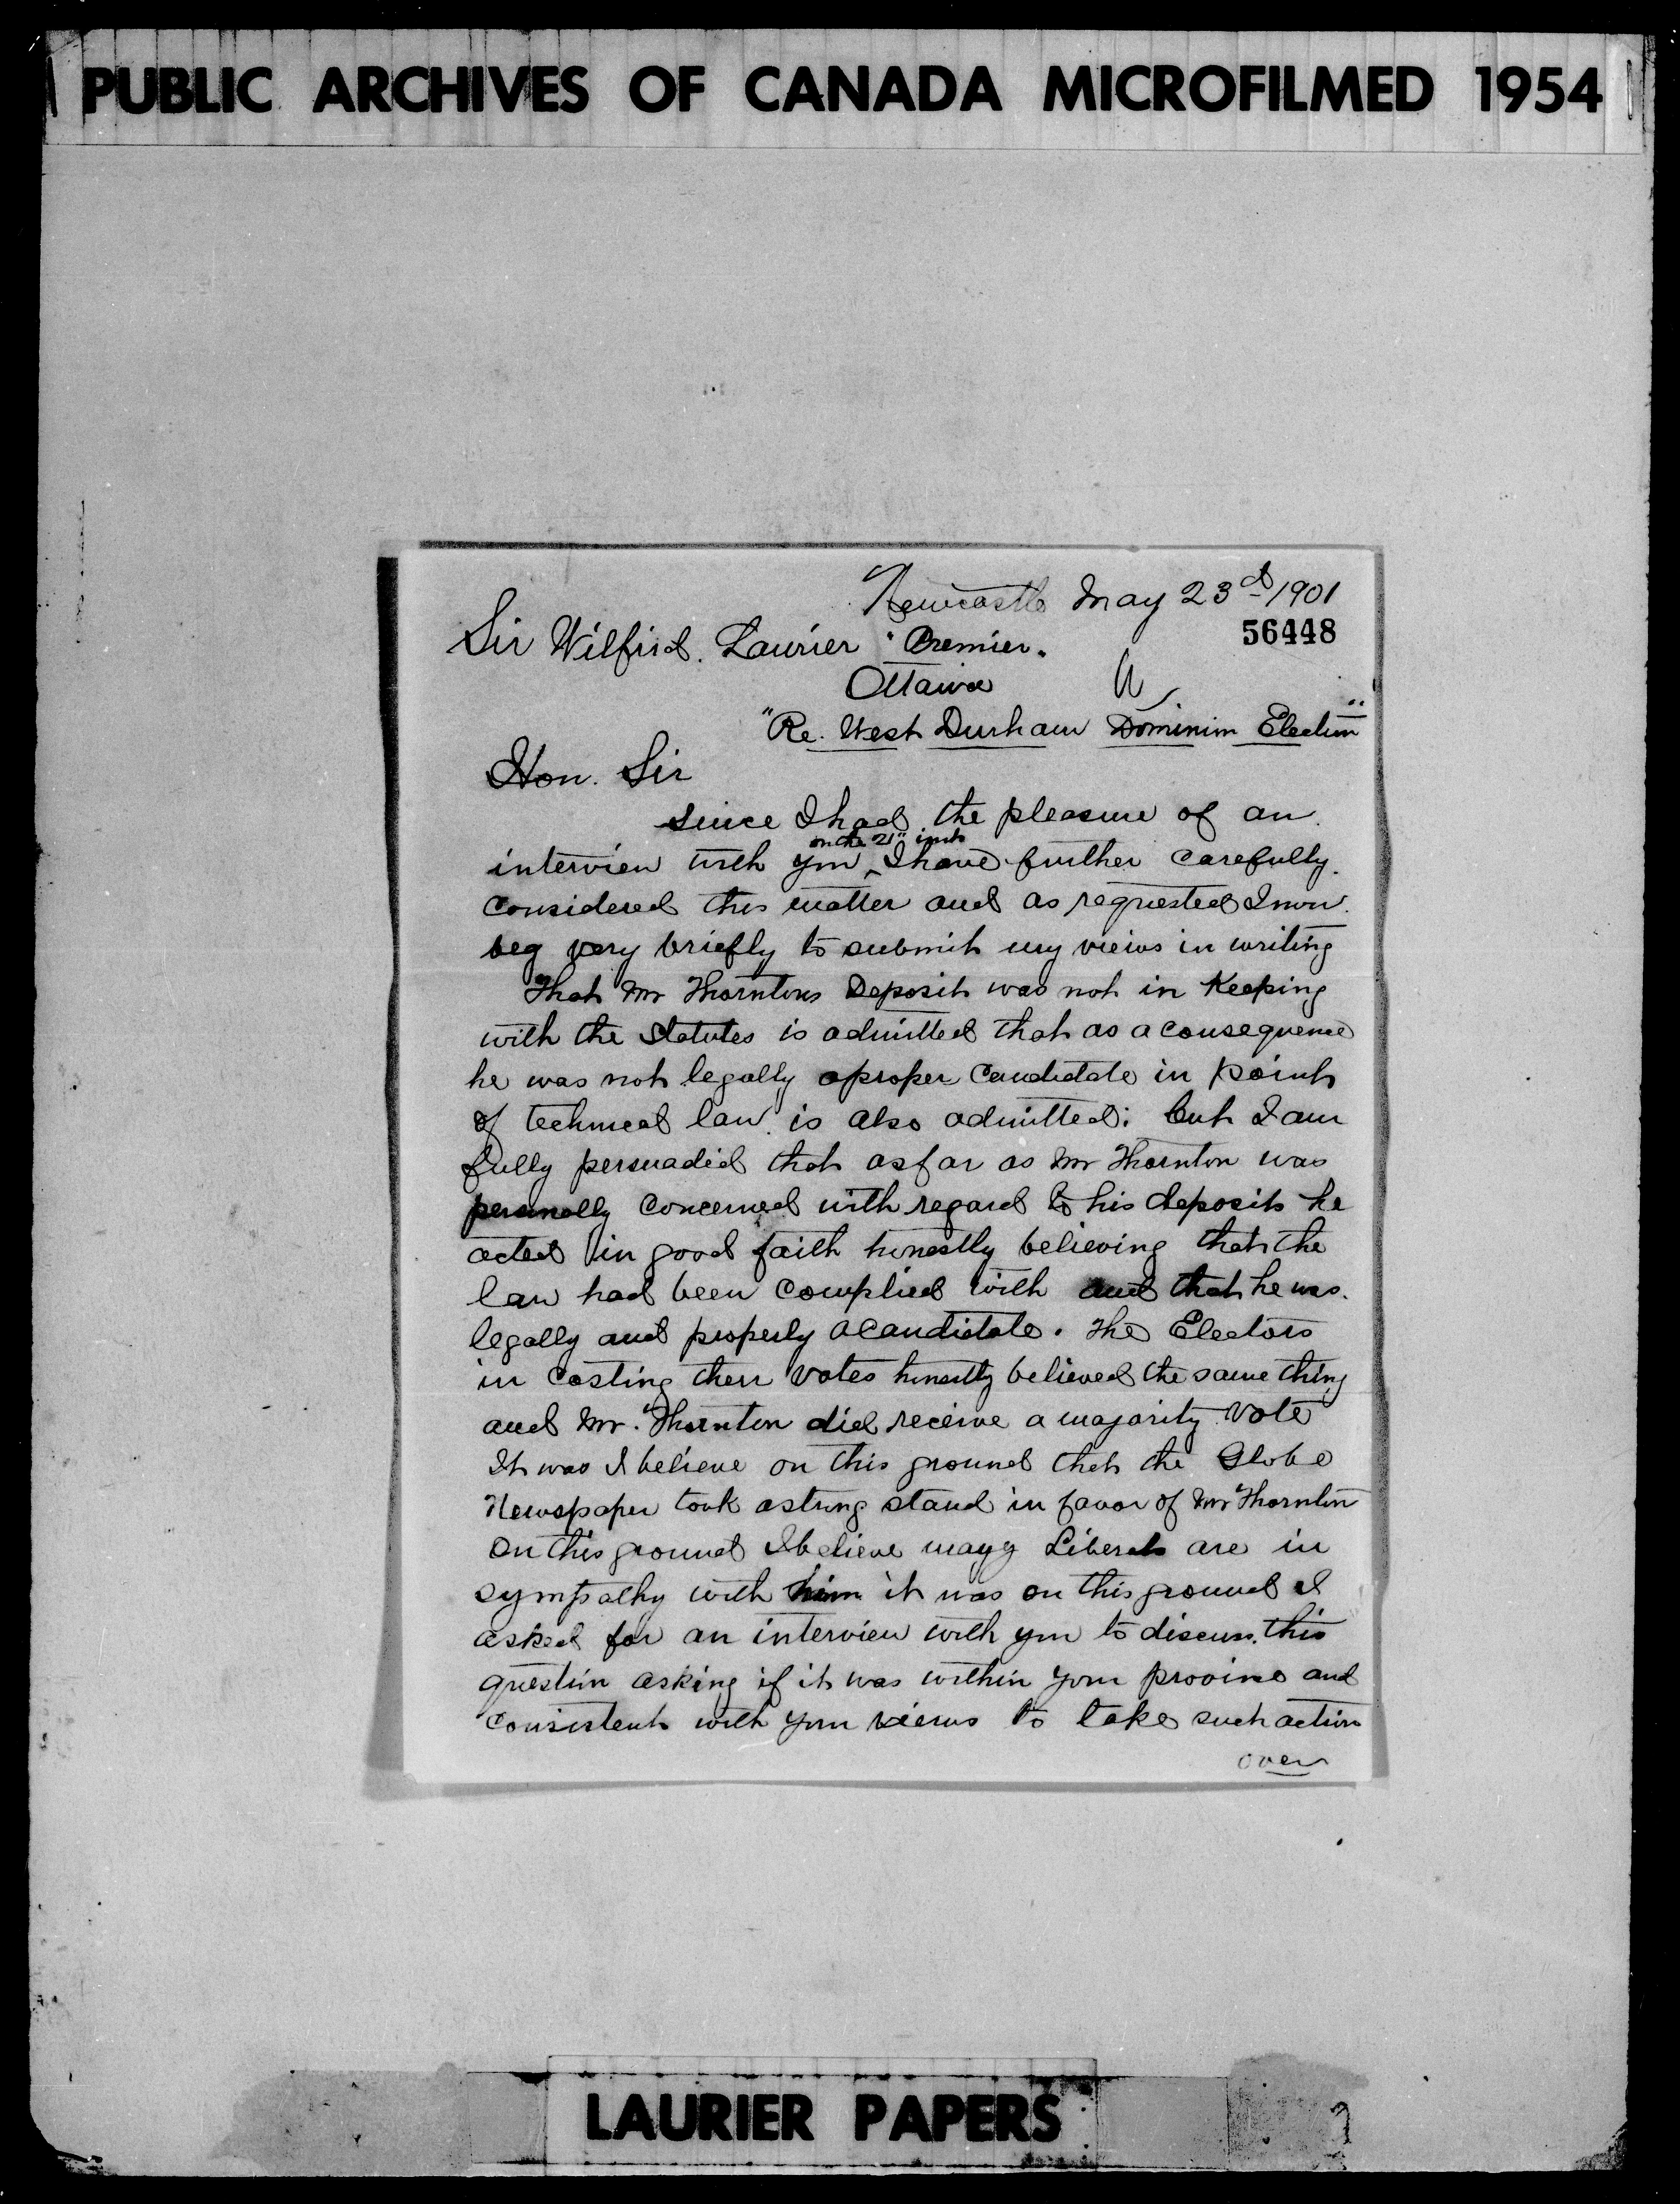 PUBLIC ARCHIVES OF CANADA MICROFILMED 1954
Newcastle May 23d 1901
56448
Sir Wilfrid. Laurier Premier.
Ottawa
"Re. West Durham Dominion Election"
Hon. Sir
since I had the pleasure of an
on the 21" inst
interview with you I have further carefully
considered this matter and as requested I now
beg very briefly to submit my views in writing
That Mr Thorntons Deposit was not in Keeping
with the Statutes is admitted that as a consequence
he was not legally a proper Candidate in point
of technical law is also admitted: but I am
fully persuaded that as far as Mr Thornton was
personally concerned with regard to his deposit he
acted in good faith honestly believing that the
law had been complied with and that he was
legally and properly a Candidate. The Electors
in casting their votes honestly believed the same thing
and Mr. Thornton did receive a majority vote
It was I believe on this ground that the Globe
Newspaper took a strong stand in favor of Mr Thornton
On this ground I believe many Liberals are in
sympathy with him it was on this ground I
asked for an interview with you to discuss this
question asking if it was within your province and
consistent with your views to take such action
over
LAURIER PAPERS